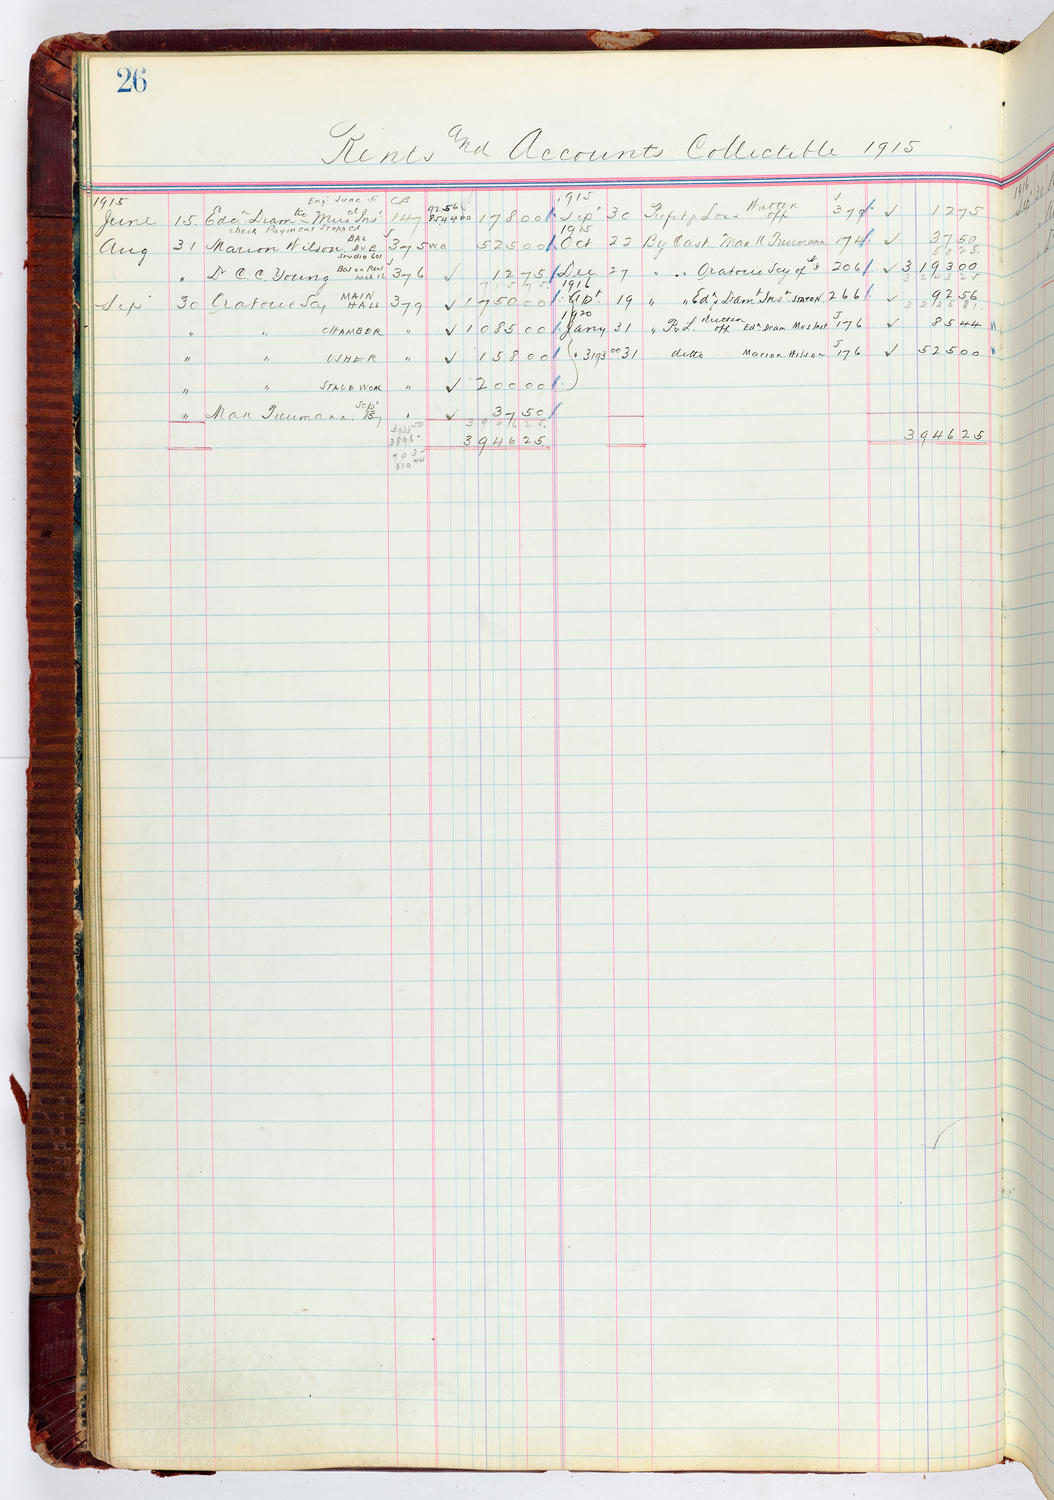 26
Rents and Accounts Collectible 1915
1915 Eng June 5 CB 92.56 1915 J
June 15. Edcn Dramtic Mus Inst 147 85.44 WO 178 00 Sep 30 Profit & Loss Written off 379 ✓ 12 75
check Payment Stopped 1915
Aug 31 Marion Wilson BAL DUE Studio 601 J 375 WO 525 00 Oct 22 By Cash Max K Treumann 174 ✓ 37 50
50 25
" Dr C. C. Young Bal on Rent J 376 ✓ 12 75 Dec. 27 " " Oratorio Socy of 206 ✓ 3193 00
715 75 1916
Sep 30 Oratorio Socy MAIN HALL 379 ✓ 1750 00 Apt 19 " " Edn Dramt Inst 266 ✓ 92 56
1920
" " CHAMBER " ✓ 1085 00 Jany 31 " P & L. Written off Edn Dram Mus Inst J 176 ✓ 85 44
" " USHER " ✓ 158 00 3193 00 31 ditto Marion Wilson J 176 ✓ 525 00
" " STAGE WORK " ✓ 200 00
" Max Treumann Sep " ✓ 37 50
3946 25
3946 25 3946 25